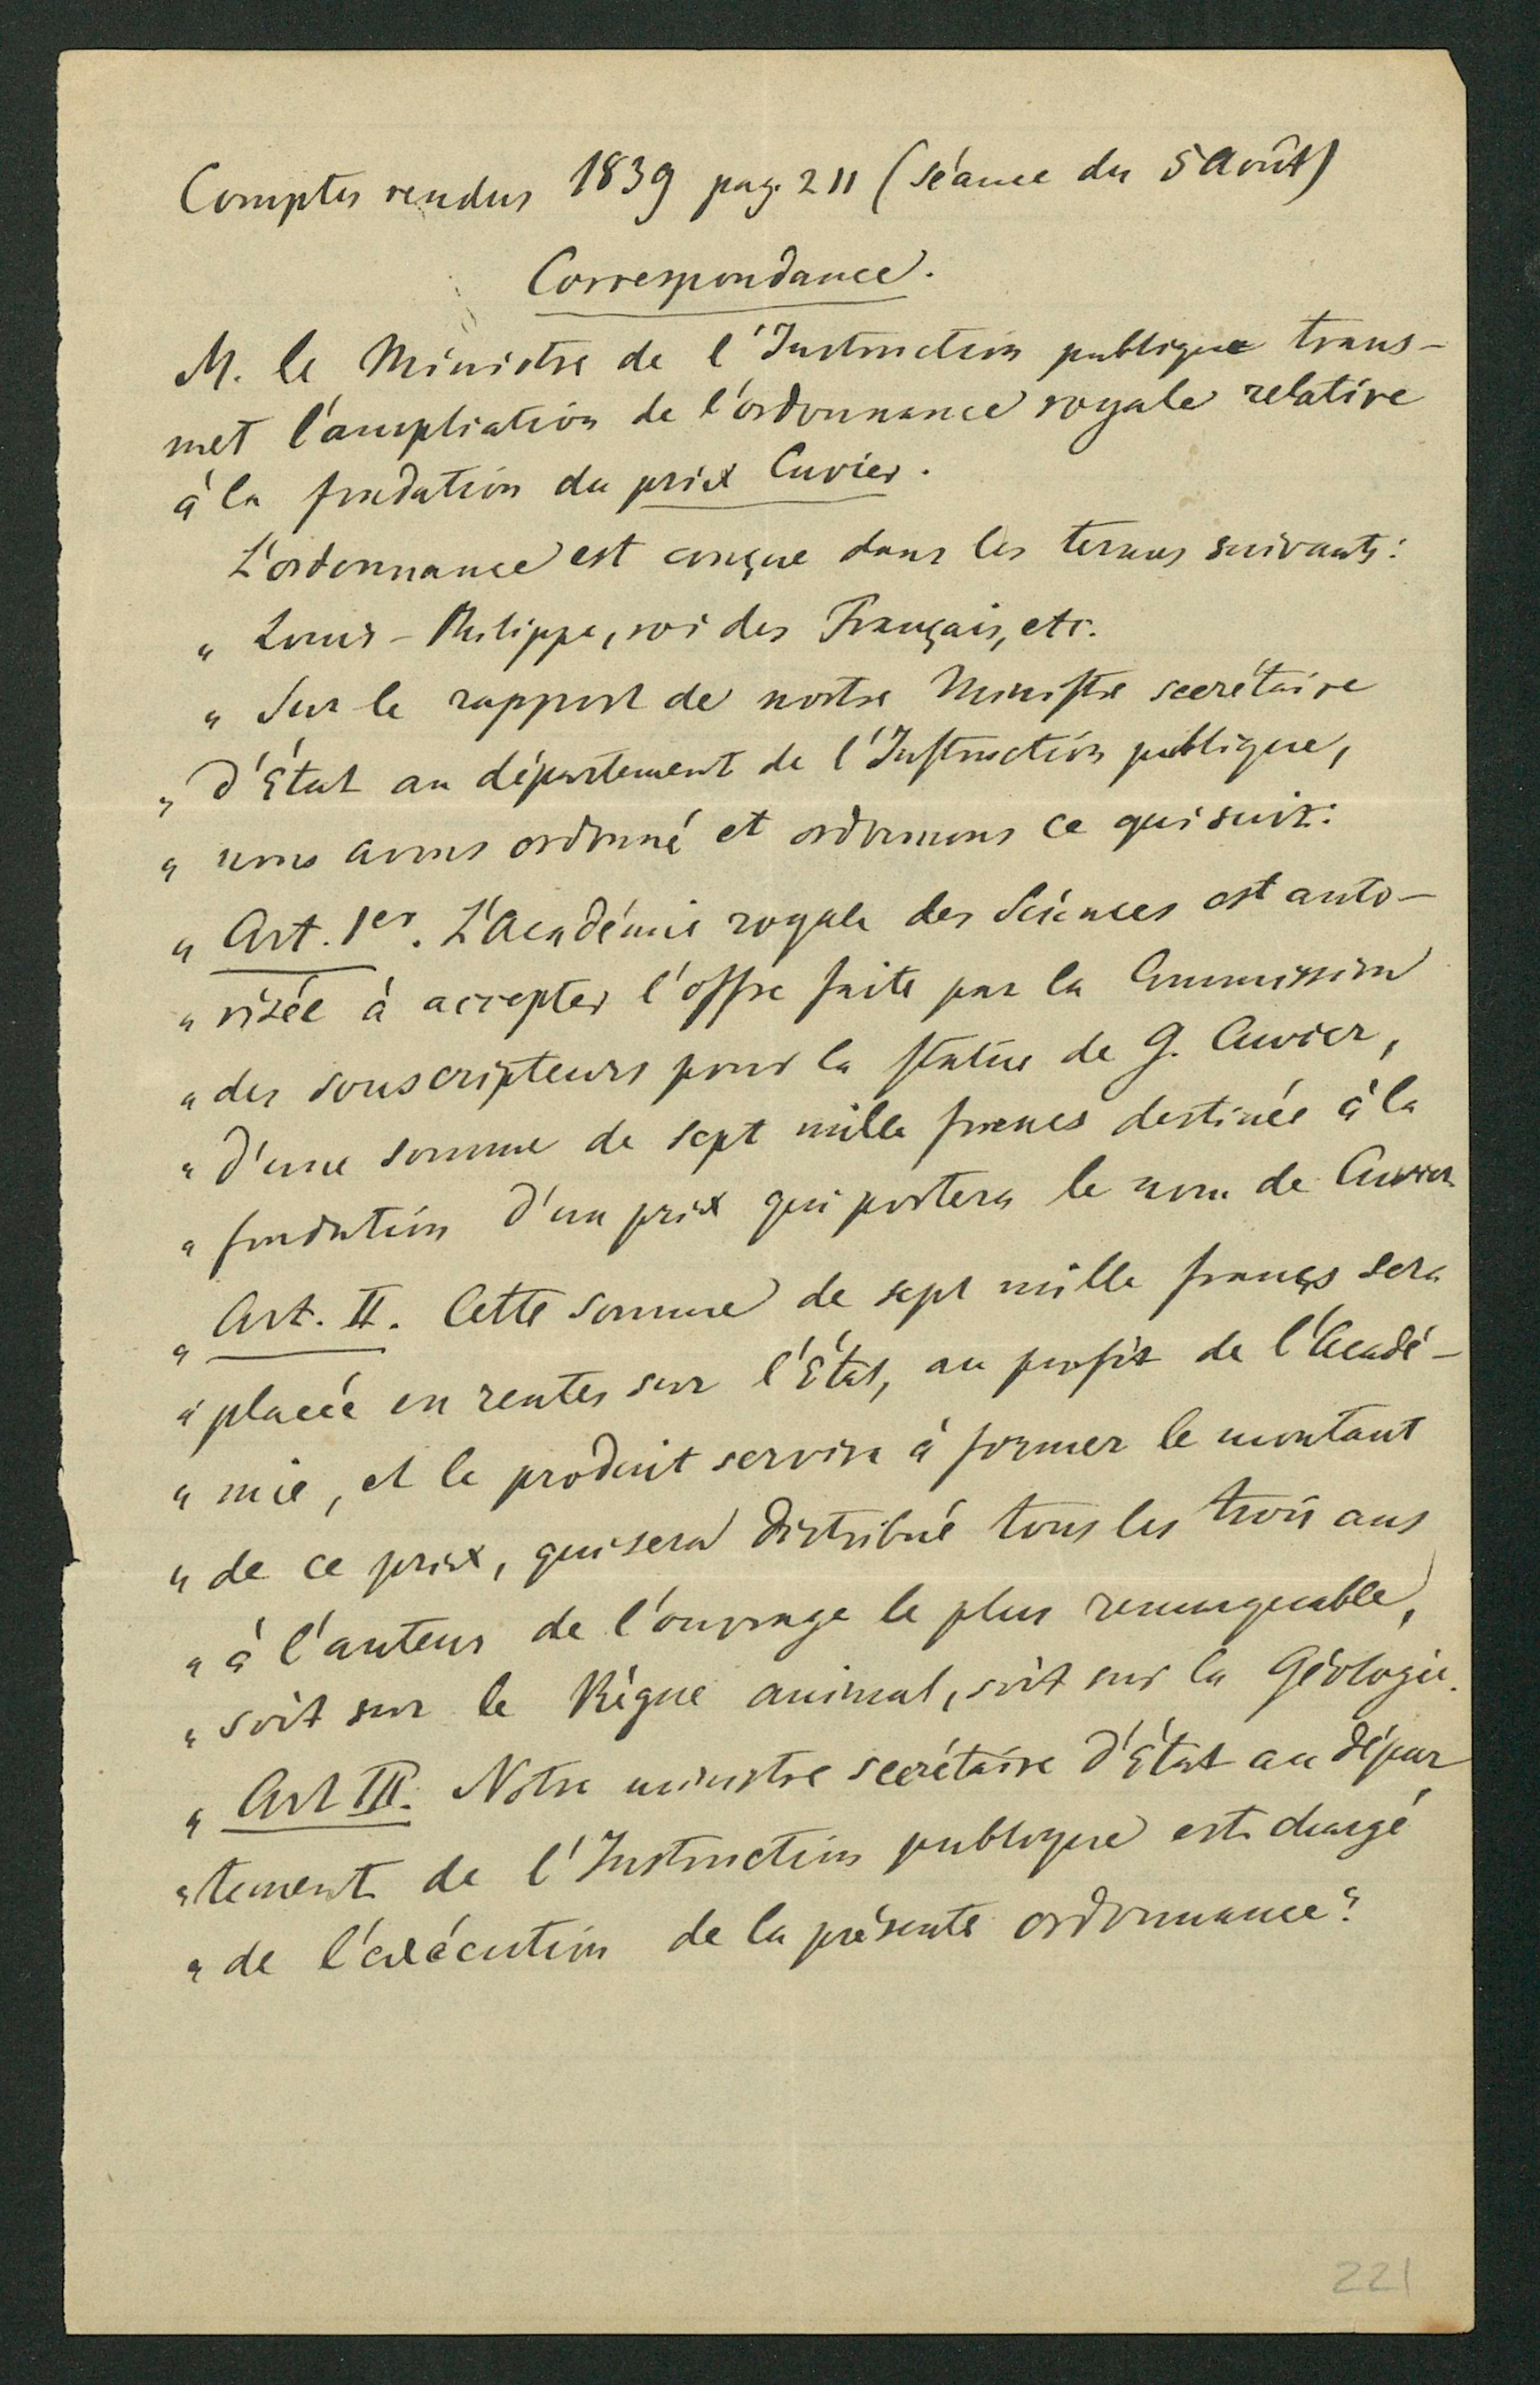 Comptes rendus 1839 pag. 211 (séance du 5 Août)
Correspondance.
M. le Ministre de l'Instruction publique trans-
met l'ampliation de l'ordonnance royale relative
à la fondation du prix Cuvier.
L'ordonnance est conçue dans les termes suivants:
„ Louis-Philippe, roi des Français, etc.
„ Sur le rapport de nostre Ministre secrétaire
„ d'État au département de l'Instruction publique,
„ nous avons ordonné et ordonnons ce qui suit:
„ Art. 1er. L'Académie royale des Sciences est auto-
„ risée à accepter l'offre faite par la Commission
„ des souscripteurs pour la statue de G. Cuvier,
„ d'une somme de sept mille francs destinée à la
„ fondation d'un prix qui portera le nom de Cuvier
„ Art. II. Cette somme de sept mille francs sera
„ placée en rentes sur l'État, au profit de l'Acadé-
„ mie, et le produit servira à former le montant
„ de ce prix, qui sera distribué tous les trois ans
„ à l'auteur de l'ouvrage le plus remarquable,
„ soit sur le Règne animal, soit sur la Géologie.
„ Art III. Notre ministre secrétaire d'État au dépar
„ tement de l'Instruction publique est chargé
„ de l'exécution de la présente ordonnance“.
221